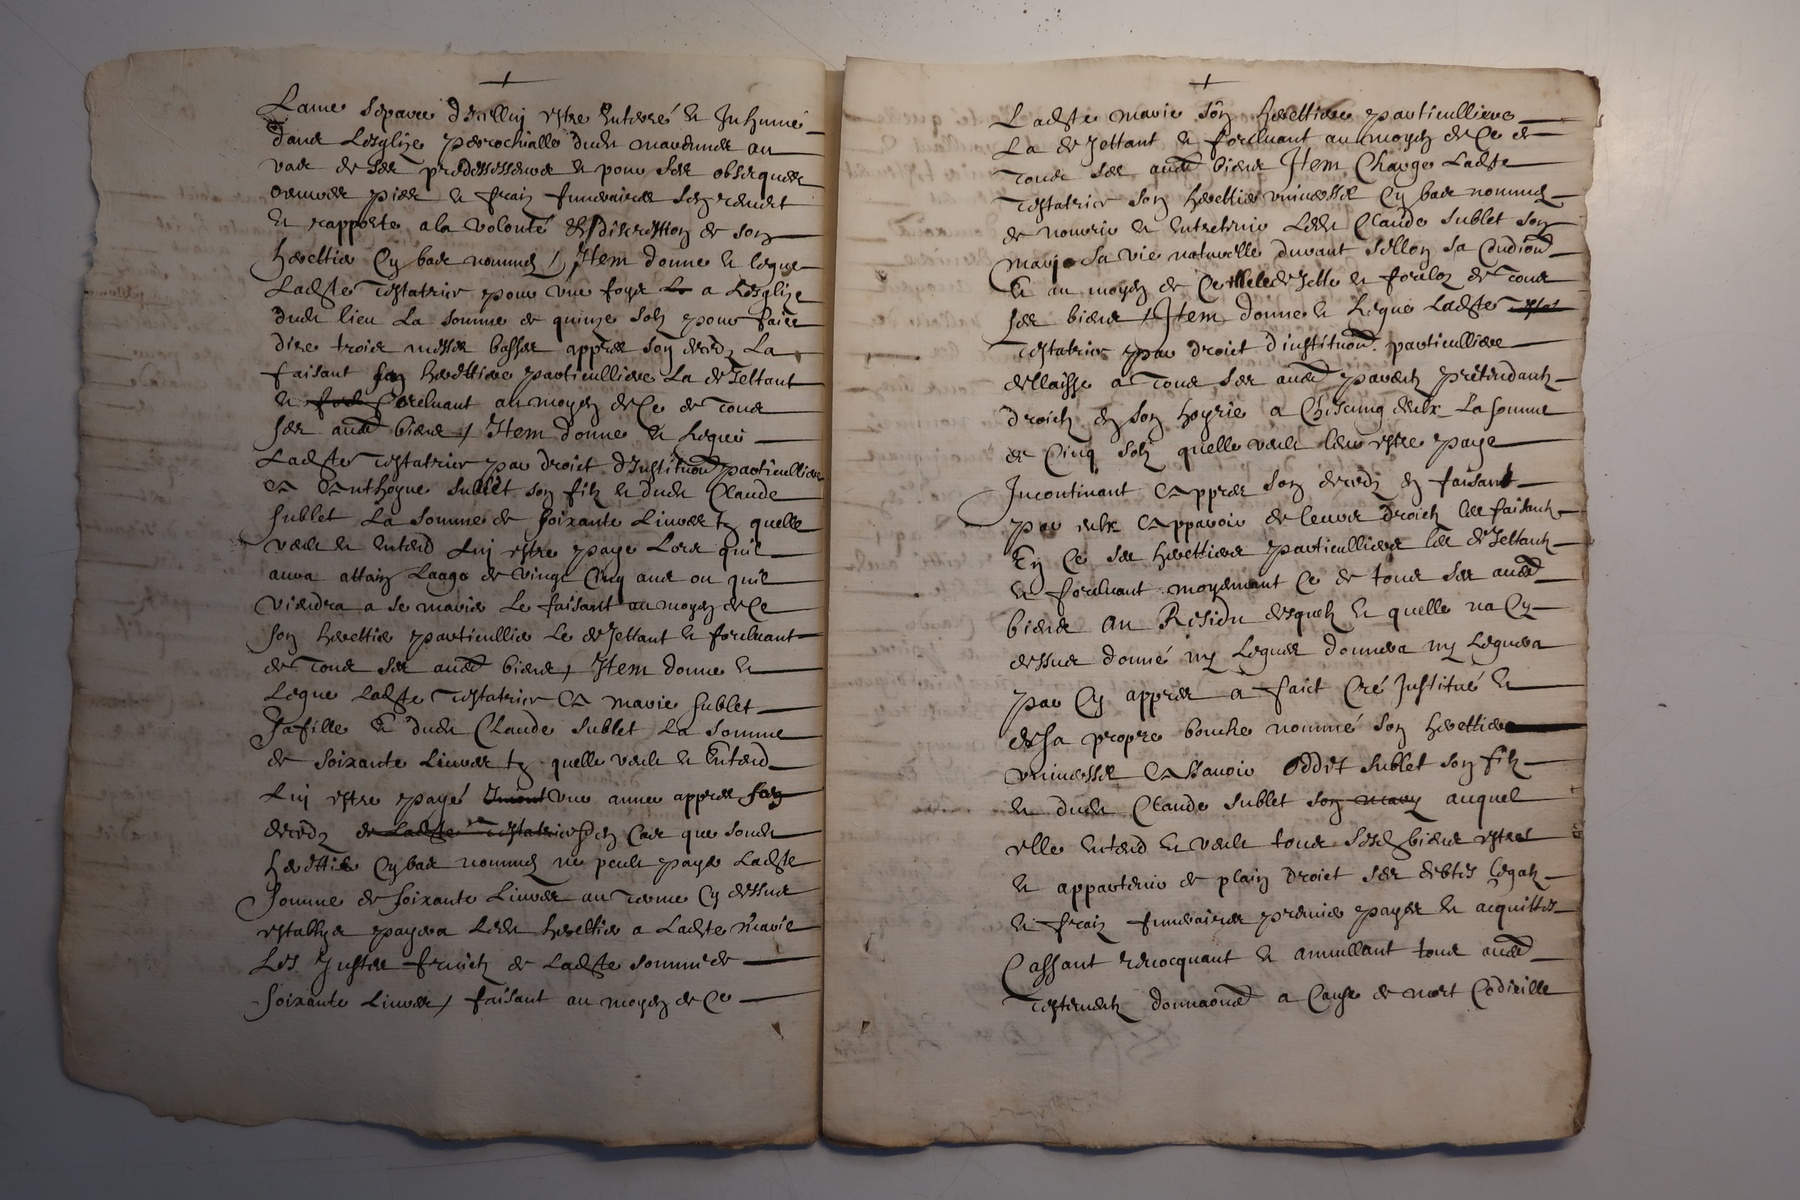 Lame separée d'icelluy estre enterré et Inhumé
dans Lesglize parrochialle dudit au
vas de ses predecesseurs et pour ses obseques
oeuvres pies et frais funeraires sen remet
et rapporte a la volonté et discretion de son
heretier cy bas nommé / Item donne et legue
Ladite testatrice pour une foys a Lesglize
dudit lieu La somme de quinze solz pour faire
dire trois messes basses appres son decedz La
faisant son herettiere particulliere La dejettant
et forcluant au moyen de ce de tous
ses autres biens / Item donne et Legue
Ladite testatrice par droict d'Institution particulliere
a Anthoyne Sublet son filz et dudit Claude
Sublet La somme de soixante Livres tz quelle
veult et entend Luy estre paye Lors quil
aura attain Laage de vingt cinq ans ou quil
viendra a se marier Le faisant au moyen de ce
son herettier particullier Le dejettant et forcluant
de tous ses autres biens / Item donne et
Legue Ladite testatrice a Marie Sublet
Sa fille et dudit Claude Sublet La somme
de soixante Livres tz quelle veult et Entend
Luy estre payé une annee appres son
decedz en cas que sondit
herettier cy bas nommé ne peult payer Ladite
somme de soixante Livres au terme cy dessus
establye payera Ledit herettier a Ladite Marie
Les Justes fruictz de Ladite somme de
soixante Livres / faisant au moyen de ce
Ladite Marie son herettiere particulliere
La dejettant et forcluant au moyen de ce de
tous ses autres biens Item Charge Ladite
testatrice son herettier universel cy bas nommé
de nourrir et entretenir Ledit Claude Sublet son
mary sa vie naturelle durant sellon sa condition
Et au moyen de ce dejette et forcloz de tous
ses biens / Item donne et Legue Ladite
testatrice par droict d'institution particulliere
dellaisse a tous ses autres parentz pretendantz
droictz en son hoyrie a Chascung deulx La somme
de Cinq solz quelle veult leur estre paye
Incontinant appres son decedz en faisant
par eulx apparoir de leurs droictz les faisant
En ce ses herettiers particulliers les dejettant
et forcluant moyenant ce de tous ses autres
biens Au Residu desquelz et quelle na Cy
dessus donné ny Legué donnera ny Leguera
par Cy appres a faict Cré Institué et
de sa propre bouche nommé son herettier
universel a scavoir Oddet Sublet son filz
et dudit Claude Sublet son mary auquel
elle entend et veult tous sesditz biens estre
et appartenir de plain droict ses debtes legatz
et frais funeraires premier payés et acquittes
Cassant revocquant et annullant tous autres
testementz donnaons a Cause de mort Codicille